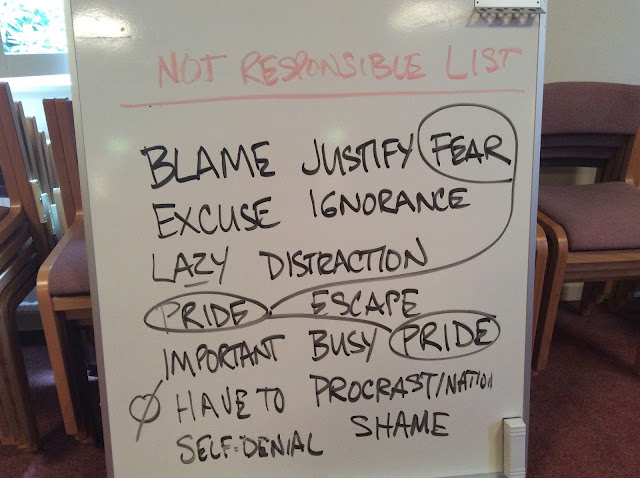 NOT RESPONSIBLE LIST
BLAME JUSTIFY FEAR
EXCUSE IGNORANCE
LAZY DISTRACTION
PRIDE ESCAPE
IMPORTANT BUSY PRIDE
Ø HAVE TO PROCRASTINATION
SELF-DENIAL SHAME